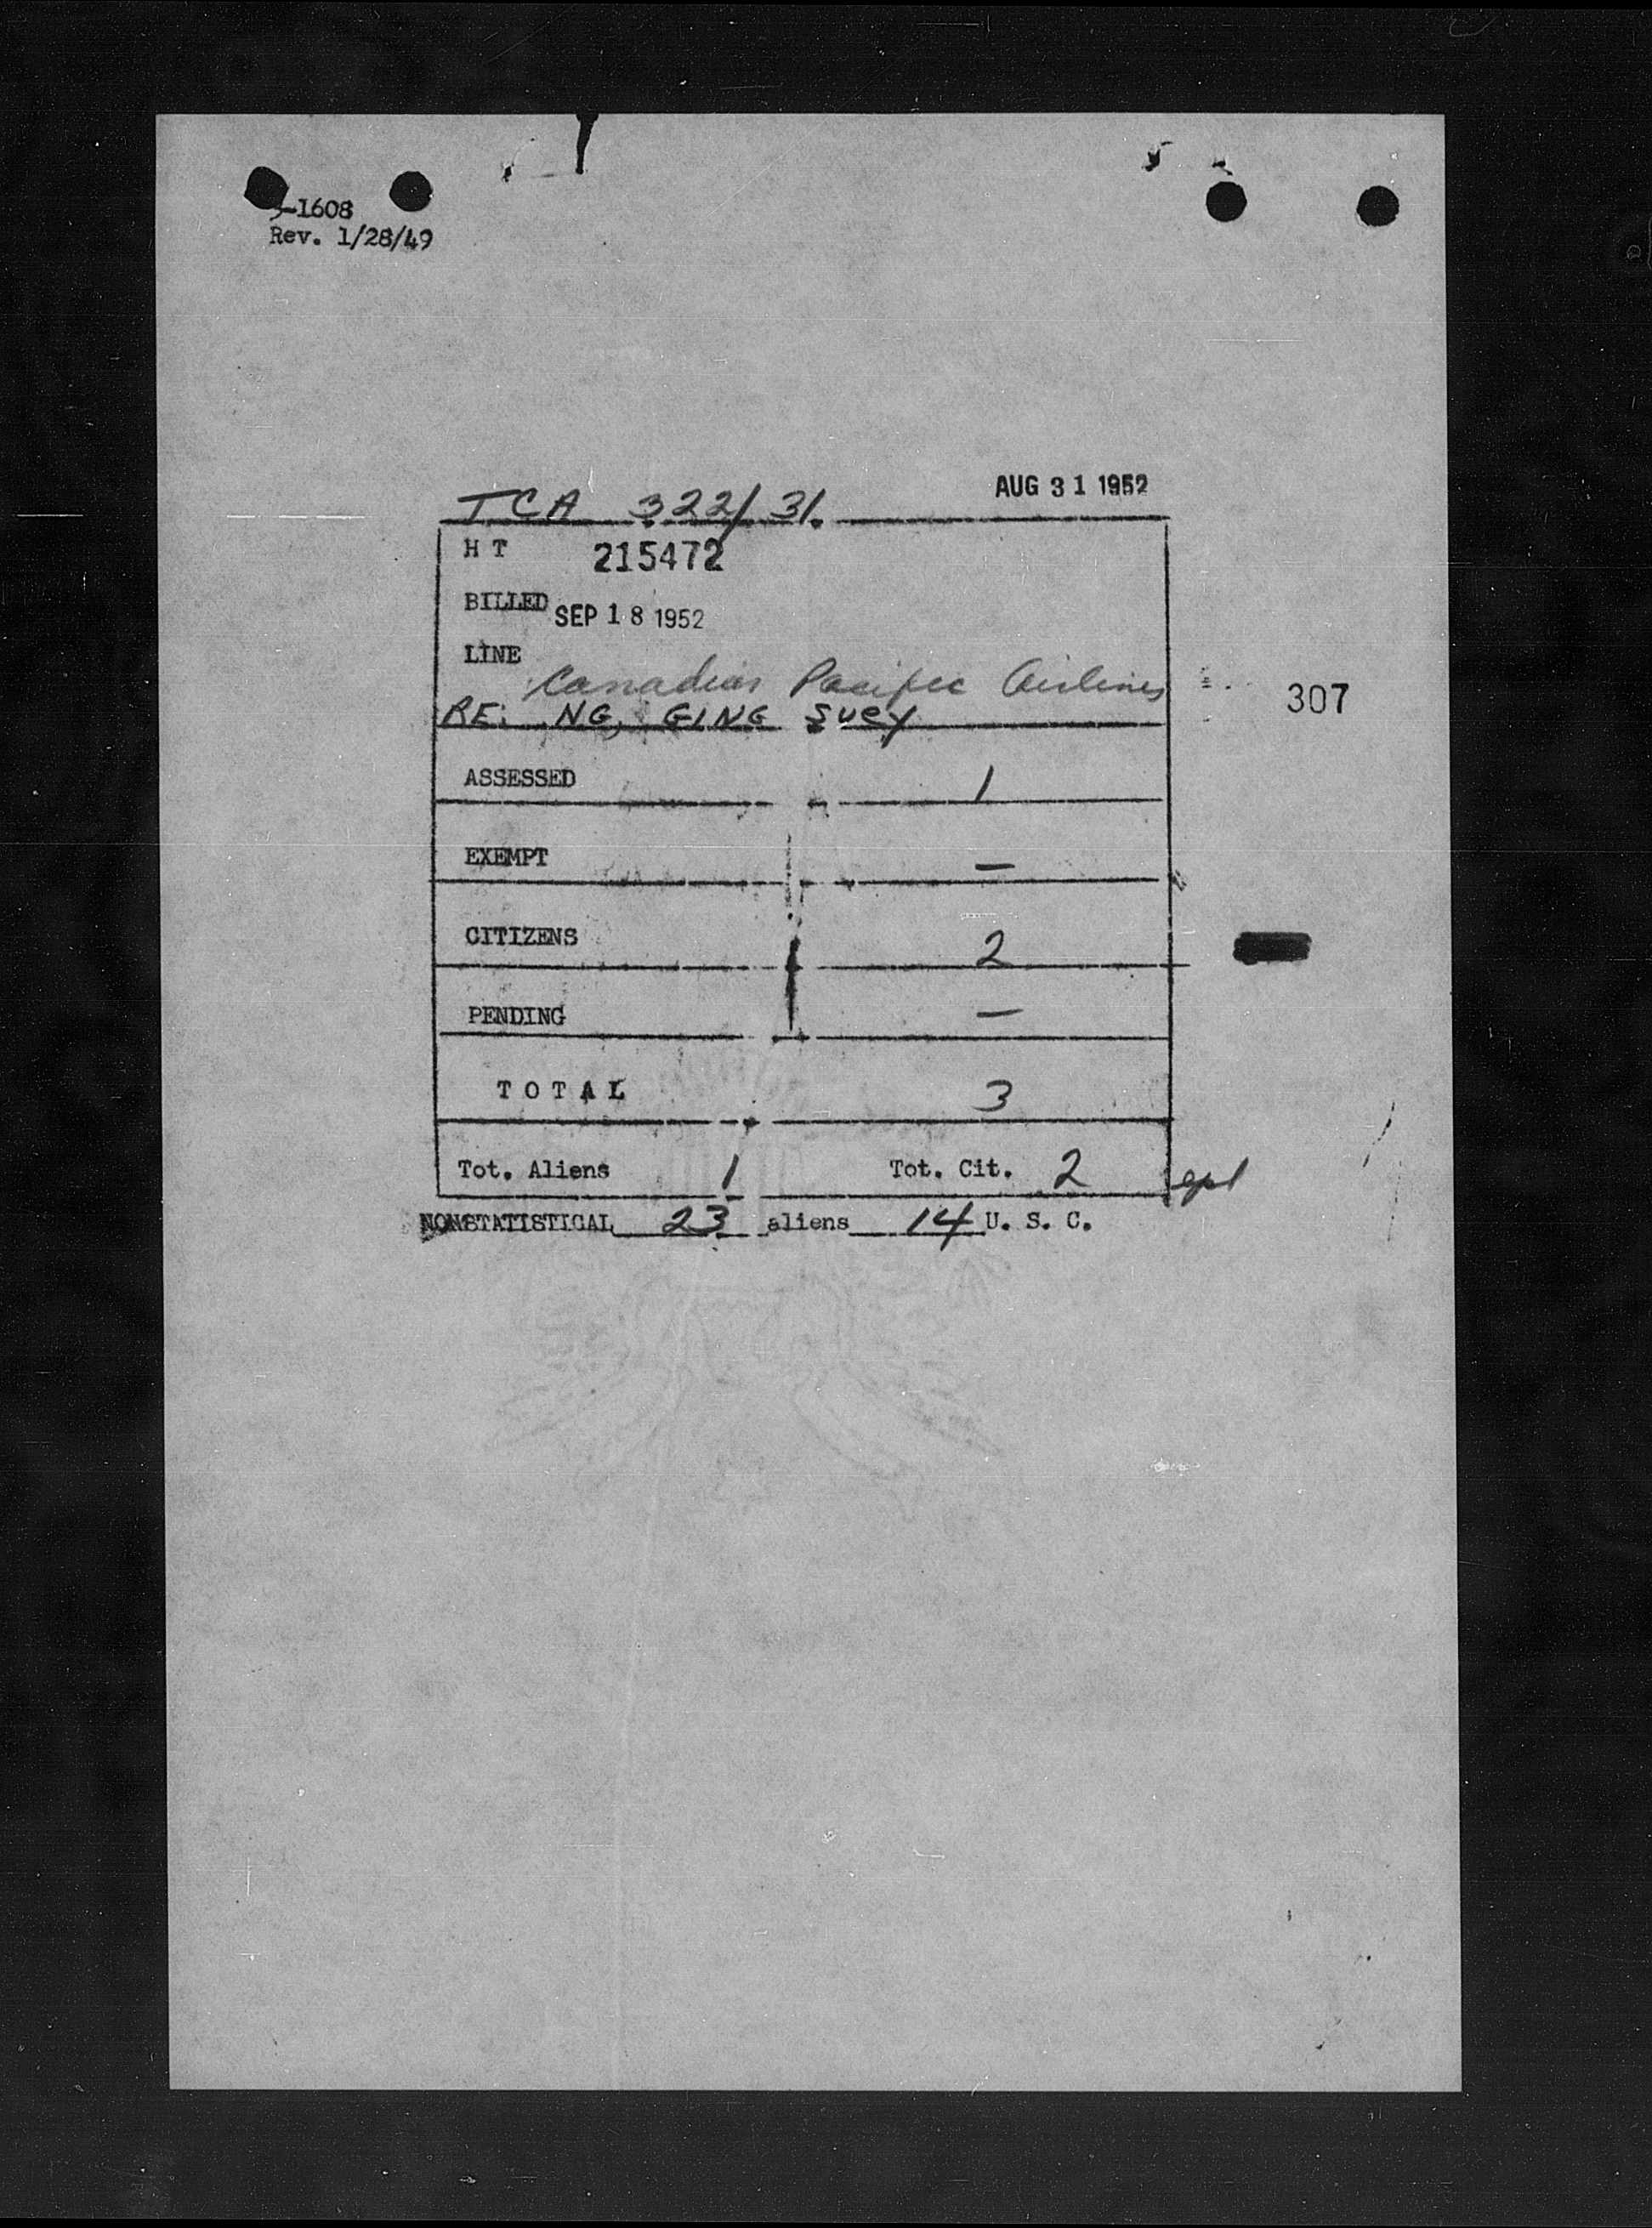 -1608
Rev. 1/28/49
TCA 322/31. AUG 31 1952
H T 215472
BILLED SEP 18 1952
LINE
Canadian Pacific Airlines
307
RE: NG, GING SUEY
ASSESSED 1
EXEMPT —
CITIZENS 2
PENDING —
TOTAL 3
Tot. Aliens 1 Tot. Cit. 2
NONSTATISTICAL 23 aliens 14 U. S. C.